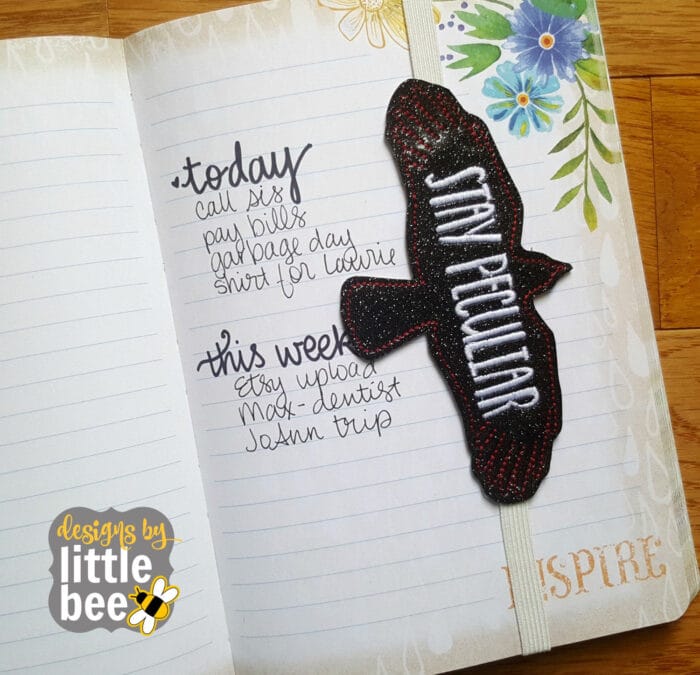 today
call sis
pay bills
garbage day
shirt for Laurie
this week
Etsy upload
Max-dentist
JoAnn trip
STAY PECULIAR
INSPIRE
designs by
little
bee